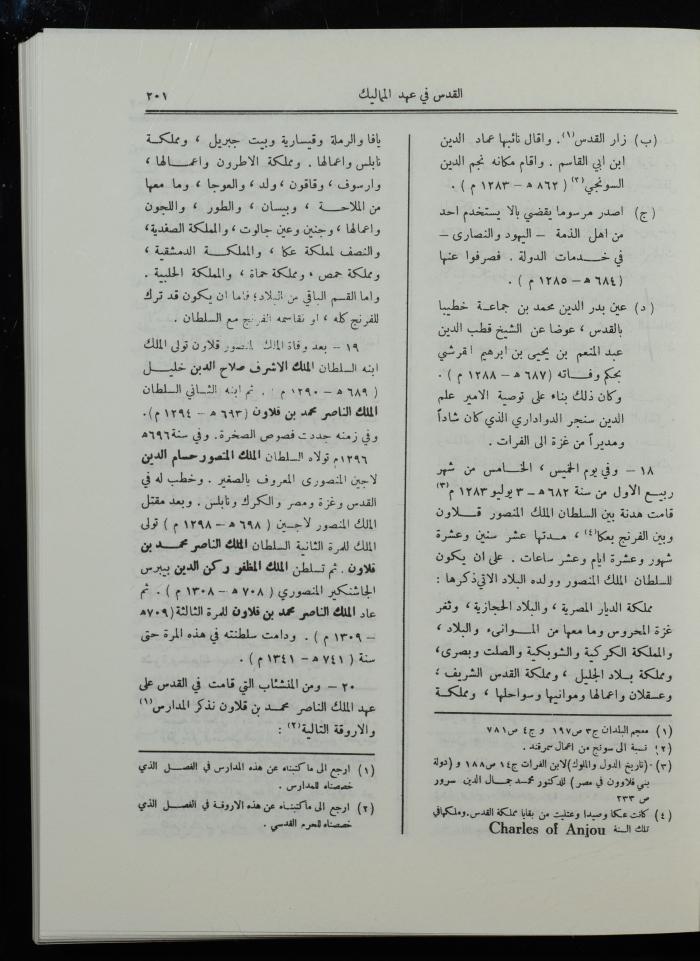 القدس في عهد المماليك
٢٠١
(ب) زار القدس(١). واقال نائبها عماد الدين
ابن ابي القاسم . واقام مكانه نجم الدين
السونجي(٢) ( ٨٦٢ ه – ١٢٨٣ م ) .
(ج) اصدر مرسوما يقضي بالا يستخدم احد
من اهل الذمة – اليهود والنصارى –
في خدمات الدولة . فصرفوا عنها
( ٦٨٤ ه – ١٢٨٥ م ) .
(د) عين بدر الدين محمد بن جماعة خطيبا
بالقدس ، عوضا عن الشيخ قطب الدين
عبد المنعم بن يحيى بن ابرهيم القرشي
بحكم وفاته (٦٨٧ ه – ١٢٨٨ م ) .
وكان ذلك بناء على توصية الامير علم
الدين سنجر الدواداري الذي كان شاداً
ومديراً من غزة الى الفرات .
١٨ – وفي يوم الخميس ، الخامس من شهر
ربيع الاول من سنة ٦٨٢ ه – ٣ يوليو ١٢٨٣ م(٣)
قامت هدنة بين السلطان الملك المنصور قلاون
وبين الفرنج بعكا(٤) ، مدتها عشر سنين وعشرة
شهور وعشرة ايام وعشر ساعات . على ان يكون
للسلطان الملك المنصور وولده البلاد الاتي ذكرها :
مملكة الديار المصرية ، والبلاد الحجازية ، وثغر
غزة المحروس وما معها من الموانىء والبلاد ،
والمملكة الكركية والشوبكية والصلت وبصرى،
ومملكة بلاد الجليل ، ومملكة القدس الشريف ،
وعسقلان واعمالها وموانيها وسواحلها ، ومملكة
(١) معجم البلدان ج٣ ص١٩٧ و ج٤ ص ٧٨١
(٢) نسبة الى سونج من اعمال سمرقند .
(٣) (تاريخ الدول والملوك)لابن الفرات ج١٤ ص١٨٨ و (دولة
بني قلاوون في مصر ) للدكتور محمد جمال الدين سرور
ص ٢٣٣
(٤) كانت عكا وصيدا وعتليت من بقايا مملكة القدس.وملكها في
تلك السنة Charles of Anjou
يافا والرملة وقيسارية وبيت جبريل ، ومملكة
نابلس واعمالها . ومملكة الاطرون واعمالها ،
وارسوف ، وقاقون ، ولد ، والعوجا ، وما معها
من الملاحة ، وبيسان ، والطور ، واللجون
واعمالها ، وجنين وعين جالوت ، والمملكة الصفدية،
والنصف لمملكة عكا ، والمملكة الدمشقية ،
ومملكة حمص ، ومملكة حماة ، والمملكة الحلبية .
واما القسم الباقي من البلاد؛ فاما ان يكون قد ترك
للفرنج كله ، او تقاسمه الفرنج مع السلطان .
١٩ – بعد وفاة الملك المنصور قلاون تولى الملك
ابنه السلطان الملك الاشرف صلاح الدين خليل
( ٦٨٩ ه – ١٢٩٠ م ) . ثم ابنه الثاني السلطان
الملك الناصر محمد بن قلاون (٦٩٣ ه – ١٢٩٤ م).
وفي زمنه جددت فصوص الصخرة. وفي سنة٦٩٦ه
١٢٩٦م تولاه السلطان الملك المنصور حسام الدين
لاجين المنصورى المعروف بالصغير . وخطب له في
القدس وغزة ومصر والكرك ونابلس . وبعد مقتل
الملك المنصور لاجين ( ٦٩٨ ه – ١٢٩٨ م ) تولى
الملك للمرة الثانية السلطان الملك الناصر محمد بن
قلاون . ثم تسلطن الملك المظفر ركن الدين بيبرس
الجاشنكير المنصوري ( ٧٠٨ ه – ١٣٠٨ م ) . ثم
عاد الملك الناصر محمد بن قلاون للمرة الثالثة (٧٠٩ه
– ١٣٠٩ م ) . ودامت سلطنته في هذه المرة حتى
سنة ( ٧٤١ ه – ١٣٤١ م ) .
٢٠ – ومن المنشئاب التي قامت في القدس على
عهد الملك الناصر محمد بن قلاون نذكر المدارس(١)
والاروقة التالية(٢) :
(١) ارجع الى ما كتبناه عن هذه المدارس في الفصل الذي
خصصناه للمدارس .
(٢) ارجع الى ما كتبناه عن هذه الاروقة في الفصل الذي
خصصناه للحرم القدسي .